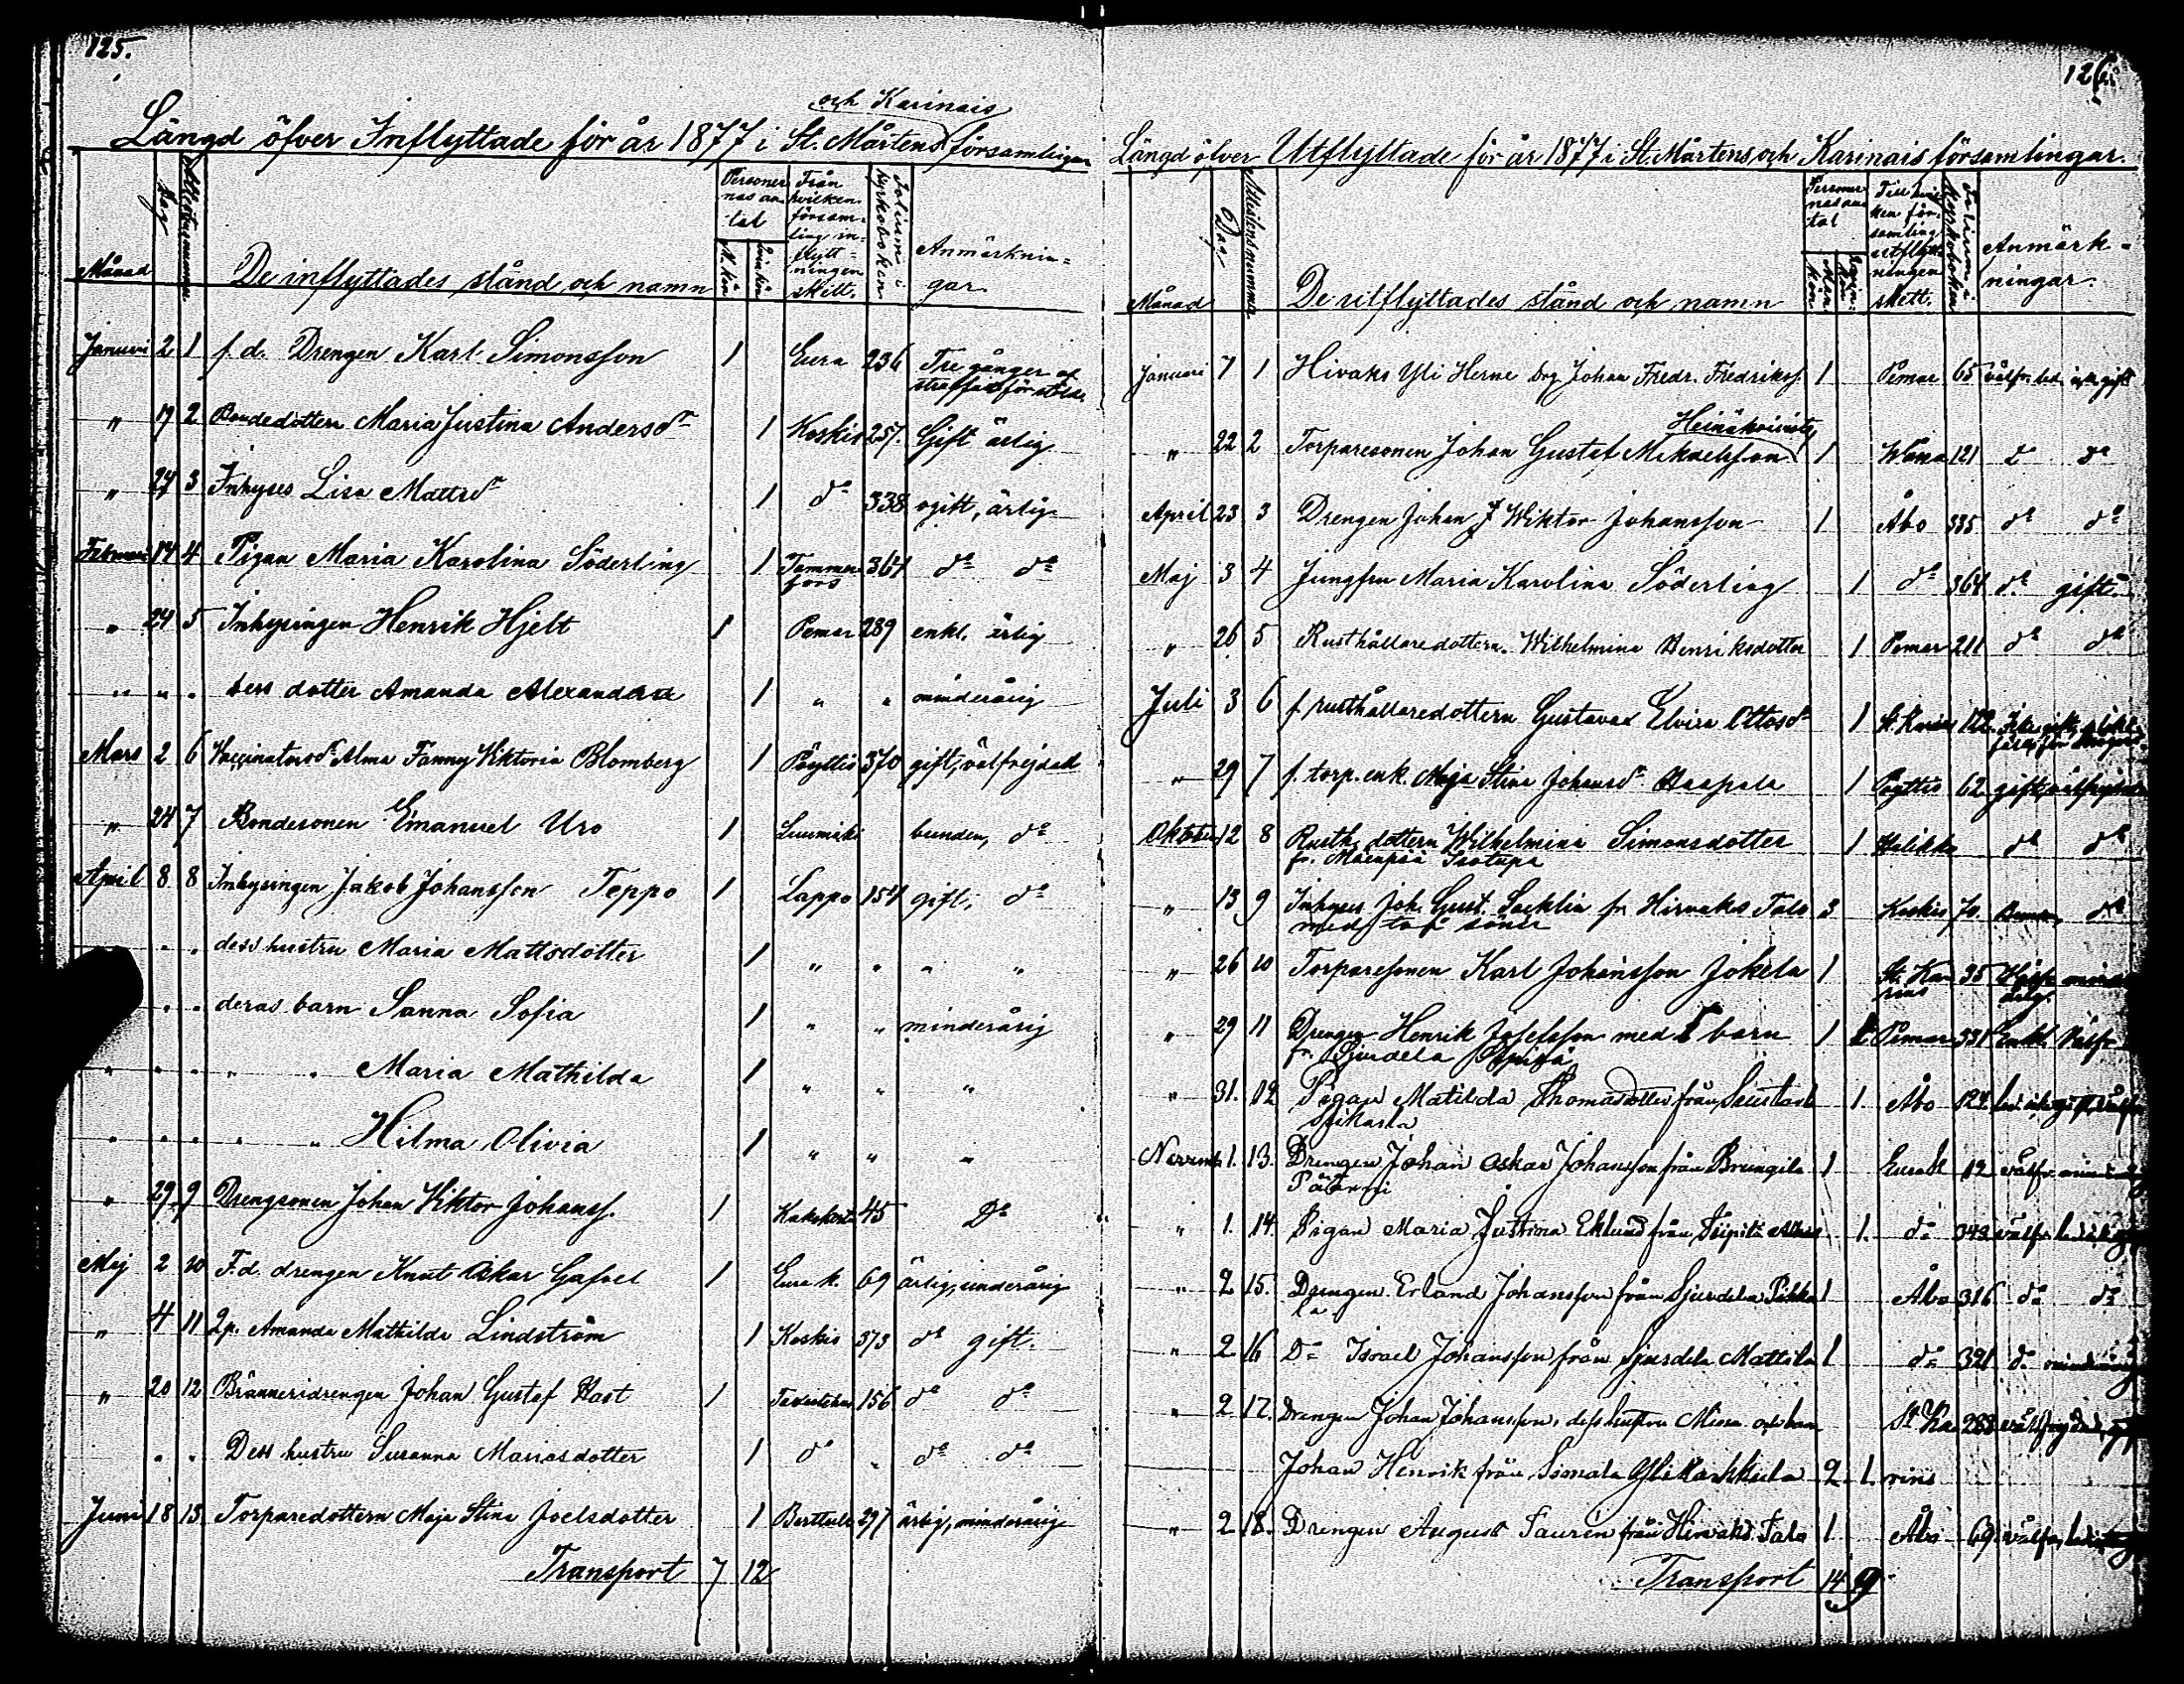 125.
och Karinais
Längd öfver Inflyttade för år 1877 i St. Mårtens församlingar
Månad
Dag
De inflyttades stånd och namn
Personernas antal
M. kön
Qvin kön
Från hvilken församling inflyttningen skett.
Folium i kyrkoboken
Anmärkningar.
Januari 2 1 f. d. Drengen Karl Simonsson 1 Eura 236 Tre gånger straffad för stöld.
" 19 2 Bondedottern Maria Justina Andersdr 1 Koskis 257. Gift ärlig
" 27 3 Inhyses Lisa Mattsdr 1 do 338 ogift, ärlig
Februari 14 4 Pigan Maria Karolina Söderling 1 Tammerfors 364 do do
" 24 5 Inhysingen Henrik Hjelt 1 Pemar 289 enkl. ärlig
" " " dess dotter Amanda Alexandra 1 " " minderårig
Mars 2 6 Vaccinatorsdr Alma Fanny Viktoria Blomberg 1 Pöyttis 370 gift, välfrejdad
" 24 7 Bondesonen Emanuel Uro 1 Luumäki bunden, do
April 8 8 Inhysingen Jakob Johansson Teppo 1 Lappo 154 gift, do
" " dess hustru Maria Mattsdotter 1 " " " "
" " deras barn Sanna Sofia 1 " " minderårig
" " " " " Maria Mathilda 1 " " "
" " " " " Hilma Olivia 1 " " "
" 29 9 Drengsonen Johan Viktor Johanss. 1 45 Do
Maj 2 10 F.d. drengen Knut Oskar Gafvel 1 Eura k. 69 ärlig, minderårig
" 4 11 Amanda Mathilda Lindström 1 Koskis 373 do gift.
" 20 12 Bränneridrengen Johan Gustaf Hast 1 Tavastehus 156 do do
" " Dess hustru Susanna Mariasdotter 1 do " do do
Juni 18 13 Torparedottern Maja Stina Joelsdotter 1 Berttula 297 ärlig, minderårig
Transport 7 12
126.
Längd öfver Utflyttade för år 1877 i St. Mårtens och Karinais församlingar.
Månad
Dag
Attestens nummer
De utflyttades stånd och namn
Personernas antal
Mankön
Qvinkön
Till hvilken församling utflyttningen skett.
Folium i kyrkoboken
Anmärkningar.
Januari 7 1 Hivaks Yli Herne Johan Fredr. Fredrikss. 1 Pemar 65
Heinäkoivisto
" 22 2 Torparesonen Johan Gustaf Mikaelsson 1 Wåna 121 do do
April 23 3 Drengen Johan Wiktor Johansson 1 Åbo 335 do do
Maj 3 4 Jungfru Maria Karolina Söderling 1 do 364 do gift.
" 26 5 Rusthållaredottern Wilhelmina Henriksdotter 1 Pemar 211 do do
Juli 3 6 f rusthållaredottern Gustava Elvira Ottosdr 1 St. Karins 122
" 29 7 f. torp. enk. Maja Stina Johansdr Haapala 1 Pöyttis 62 gift, välfrejdad
Oktober 12 8 Rusth. dottern Wilhelmina Simonsdotter 1 Halikko do do
fr. Mäenpää Isotupa
" 13 9 Inhyses Joh. Gust. Saeklin fr Hirvaks Talo 3 Koskis 70. do
med två söner
" 26 10 Torparesonen Karl Johansson Jokela 1 St. Karins 35
" 29 11 Drengen Henrik Josefsson med 1 barn 1 1 Pemar 331 Enkl. Välfr
fr. Sjundela
" 31. 12 Pigan Matilda Thomasdotter från 1. Åbo 124
November 1. 13. Drengen Johan Oskar Johansson från Brungila 1 Eura k 12 välfr
" 1. 14. Pigan Maria Justina Eklund från 1. do 343 välfr
" 2 15. Drengen Erland Johansson från Sjundela Pikka 1 Åbo 316 do do
la
" 2 16 Do Israel Johansson från Sjundela Mattila 1 do 321 do minderårig
" 2 17. Drengen Johan Johansson, dess hustru Miina och barn St Ka 288 välfrejdad
Johan Henrik från Simala Ylikarkkula 2 1. rins
" 2 18. Drengen August Saurén från Hirvaks Talo 1. Åbo 69. välfr,
Transport 14 9